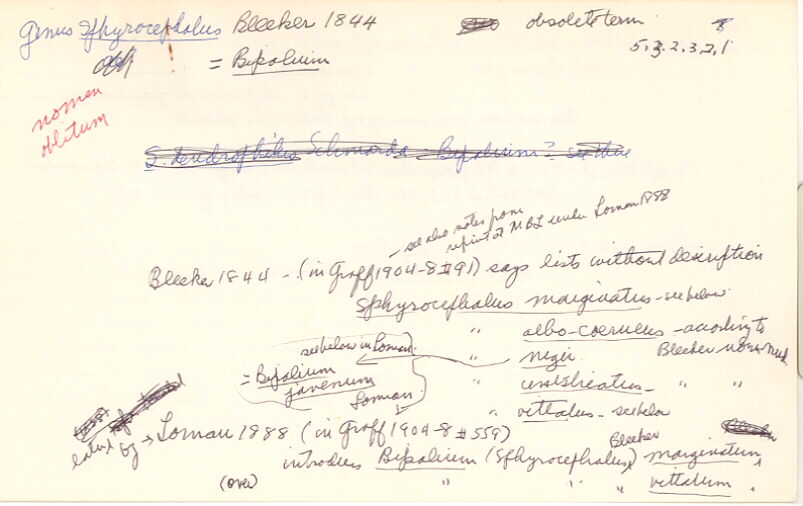 Genus Sphyrocephalus Bleeker 1844 obsolete term
= Bipalium 5.3.2.3.2.1
!
nomen
oblitum
S. dendrophilus Schmarda - Bipalium? see
see also notes from
reprint at MBL under Loman 1888
Bleeker 1844 - (in Graff 1904-8 #91) says lists without description
Sphyrocephalus marginatus - see below
" albo-coeruleus - according to
see below in Loman " niger Bleeker nomen nud.
= Bipalium javanum Loman " - " "
" vittatus - see below
later by → Loman 1888 (in Graff 1904-8 #559)
introduces Bipalium (Sphyrocephalus) Bleeker marginatum,
(over) " " " vittatum,